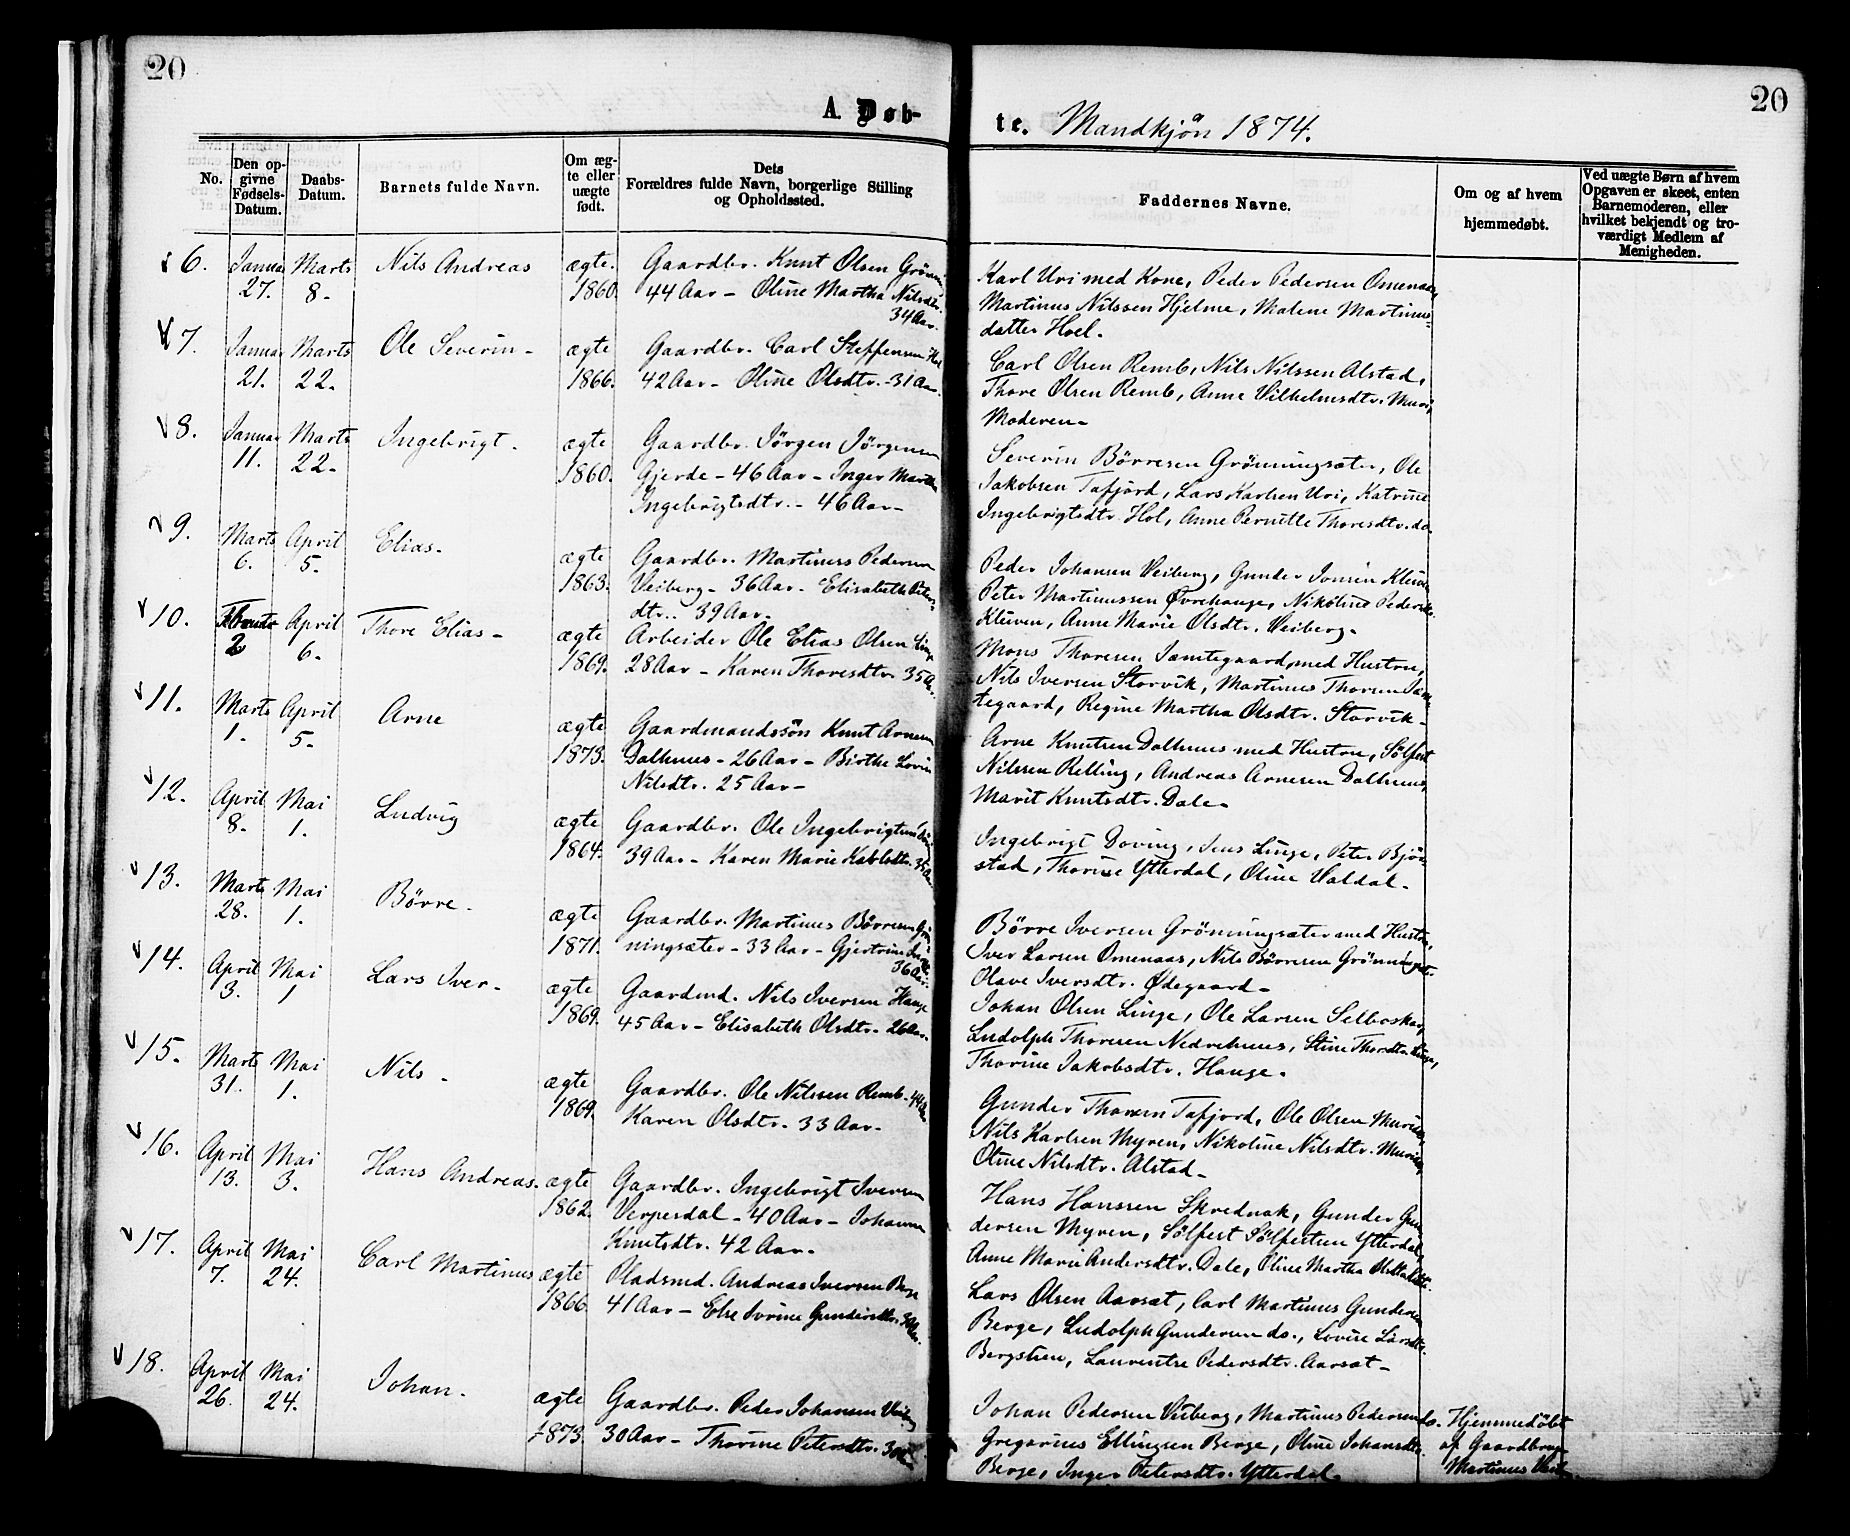 20
20
A. Døb-
te. Mandkjøn 1874.
No.
Den op-
givne
Fødsels-
Datum.
Daabs-
Datum.
Barnets fulde Navn.
Om æg-
te eller
uægte
født.
Dets
Forældres fulde Navn, borgerlige Stilling
og Opholdssted.
Faddernes Navne.
Om og af hvem
hjemmedøbt.
Ved uægte Børn af hvem
Opgaven er skeet, enten
Barnemoderen, eller
hvilket bekjendt og tro-
værdigt Medlem af
Menigheden.
6. Januar 27. Marts 8. Nils Andreas ægte. 1860.
Gaardbr. Knut Olsen
44 Aar - Oline Martha Nilsdtr.
34 Aar.
Karl Uri med Kone, Peder Pedersen Omenaas,
Martinus Nilssen Hjelme, Malene Martinus-
datter Hoel.
7. Januar 21. Marts 22. Ole Severin - ægte 1866.
Gaardbr. Carl Steffensen Hol
42 Aar - Oline Olsdtr. - 31 Aar
Carl Olsen Remb, Nils Nilssen Alstad,
Thore Olsen Remb, Anne Vilhelmsdtr. Muri,
Moderen -
8. Januar 11. Marts 22. Ingebrigt. ægte 1860.
Gaardbr. Jörgen Jörgensen
Gjerde - 46 Aar - Inger Martha
Ingebrigtsdtr. - 46 Aar -
Severin Börresen Grönningsæter, Ole
Jakobsen Tafjord, Lars Karlsen Uri, Katrine
Ingebrigtsdtr. Hol, Anne Pernille Thoresdtr. do
9. Marts 6. April 5. Elias. ægte 1863.
Gaardbr. Martinus Pedersen
Veiberg - 36 Aar - Elisabeth Peters-
dtr. 39 Aar -
Peder Johansen Veiberg, Gunder Jonsen Kleiven
Peter Martinussen Øvrehauge, Nikoline Pedersdtr.
Kleiven, Anne Marie Olsdtr. Veiberg -
10. 2 April 6. Thore Elias - ægte 1869.
Arbeider Ole Elias Olsen Linge
28 Aar - Karen Thoresdtr. 35 Aar.
Mons Thoresen Jamtegaard, med Hustru,
Nils Iversen Storvik, Martinus Thoresen Jam-
tegaard, Regine Martha Olsdtr. Storvik -
11. Marts 1. April 5. Arne ægte 1873.
Gaardmandssön Knut Arnesen
Dalhuus - 26 Aar - Birthe Lovise
Nilsdtr. 25 Aar -
Arne Knutsen Dalhuus med Hustru, Sölfest
Nilssen Relling, Andreas Arnesen Dalhuus,
Marit Knutsdtr. Dale -
12. April 8. Mai 1. Ludvig ægte 1864.
Gaardbr. Ole Ingebrigtsen
39 Aar - Karen Marie 35 Aar
Ingebrigt Döving, Jens Linge, Peter Björ-
stad, Thorine Ytterdal, Oline Valdal -
13. Marts 28. Mai 1. Börre. ægte 1871.
Gaardbr. Martinus Börresen Grön-
ningsæter - 33 Aar - Gjertrine
36 Aar.
Börre Iversen Grönningsæter med Hustru,
Iver Larsen Omenaas, Nils Börresen Grönningsæt.
Olave Iversdtr. Ødegaard -
14. April 3. Mai 1 Lars Iver - ægte 1869.
Gaardmd. Nils Iversen Hauge
45 Aar - Elisabeth Olsdtr. 26 Aar.
Johan Olsen Linge, Ole Larsen Selboskar,
Ludolph Thoresen Nedrehuus, Stine Thorsdtr. Linge,
Thorine Jakobsdtr. Hauge -
15. Marts 31. Mai 1. Nils - ægte 1869.
Gaardbr. Ole Nilssen Remb - 44 Aar
Karen Olsdtr. 33 Aar -
Gunder Thoresen Tafjord, Ole Olsen Murien,
Nils Karlsen Myren, Nikoline Nilsdtr. Murien,
Oline Nilsdtr. Alstad -
16. April 13. Mai 3. Hans Andreas. ægte 1862.
Gaardbr. Ingebrigt Iversen
Verpesdal - 40 Aar - Johanne
Knutsdtr. 42 Aar -
Hans Hanssen Skrednak, Gunder Gun-
dersen Myren, Sölfest Sölfestsen Ytterdal,
Anne Marie Andersdtr. Dale, Oline Martha
17. April 7. Mai 24. Carl Martinus ægte 1866
Pladsmd. Andreas Iversen Berge
41 Aar - Else Ivrine Gundersdtr.
Lars Olsen Aarsæt, Carl Martinus Gundersen
Berge, Ludolph Gundersen do., Lovise Larsdtr.
Bergstien, Laurentse Pedersdtr. Aarsæt -
18. April 26. Mai 24. Johan. ægte 1873.
Gaardbr. Peder Johansen Veiberg
30 Aar - Thorine Petersdtr.
Johan Pedersen Veiberg, Martinus Pedersen do.
Gregorius Ellingsen Berge, Oline Johansdtr.
Berge, Inger Petersdtr. Ytterdal -
Hjemmedöbt
af Gaardbrug.
Martinus Veib.